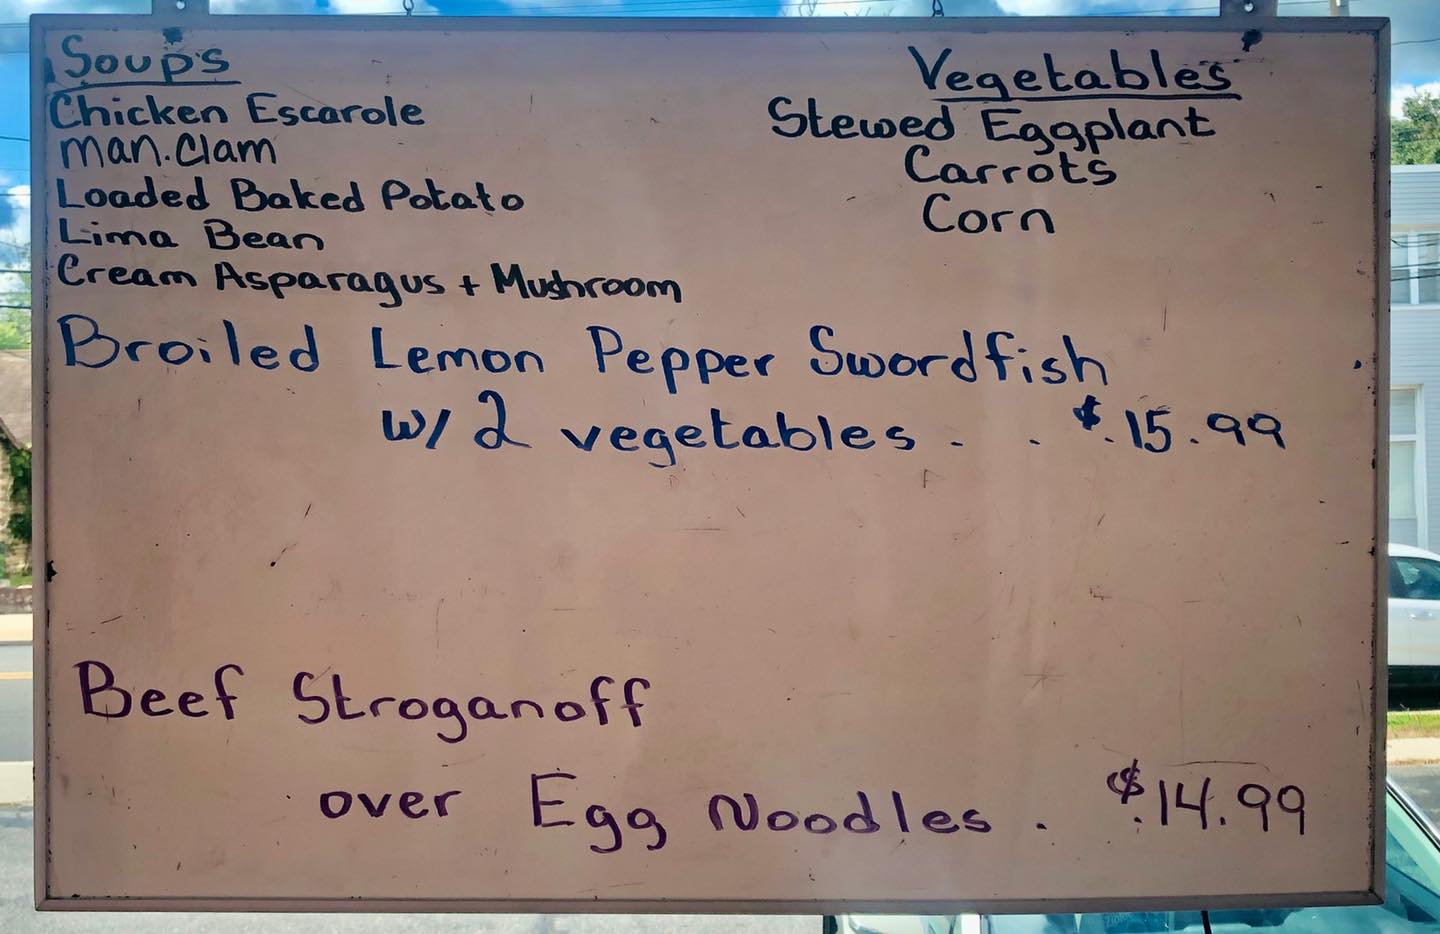 Soup's
Chicken Escarole
Man. Clam
Loaded Baked Potato
Lima Bean
Cream Asparagus + Mushroom
Vegetables
Stewed Eggplant
Carrots
Corn
Broiled Lemon Pepper Swordfish
w/ 2 vegetables . . $.15.99
Beef Stroganoff
over Egg Noodles . $.14.99